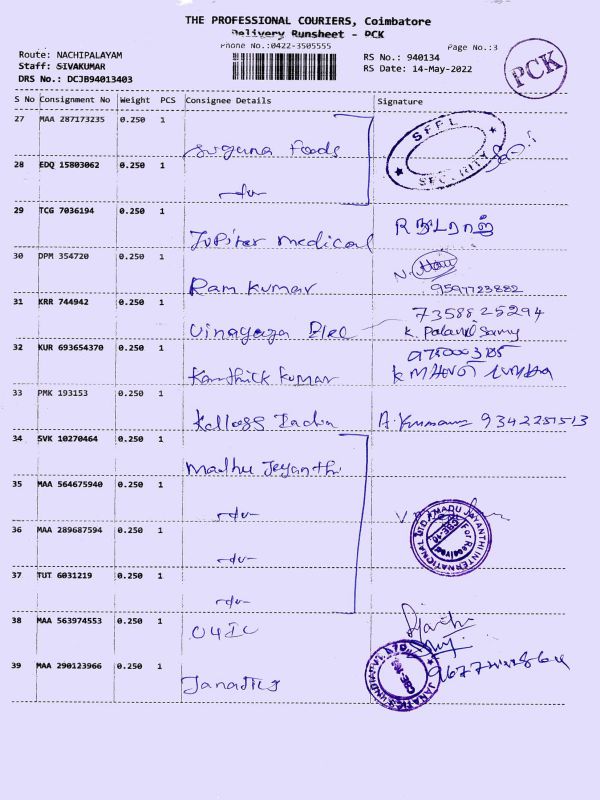 THE PROFESSIONAL COURIERS, Coimbatore
Delivery Runsheet - PCK
Phone No.:0422-3505555
Page No.:3
Route: NACHIPALAYAM
RS No.: 940134
Staff: SIVAKUMAR
RS Date: 14-May-2022
DRS No.: DCJB94013403
PCK
S No Consignment No Weight PCS Consignee Details Signature
27 MAA 287173235 0.250 1 Suguna Foods
SFFL
SECURITY
28 EDQ 15803062 0.250 1 -do-
29 TCG 7036194 0.250 1 Jupiter medical R நடராஜ்
30 DPM 354720 0.250 1 Ram Kumar
9597723882
31 KRR 744942 0.250 1 Vinayaga Elec 7358825294
K. Palani Samy
32 KUR 693654370 0.250 1 Karthick Kumar
33 PMK 193153 0.250 1 Kellogg India A. Kumar 9342251513
34 SVK 10270464 0.250 1 Madhu Jeyanthi
35 MAA 564675940 0.250 1 -do-
MADU JAYANTHI INTERNATIONAL
36 MAA 289687594 0.250 1 -do-
37 TUT 6031219 0.250 1 -do-
38 MAA 563974553 0.250 1
39 MAA 290123966 0.250 1 Janatics